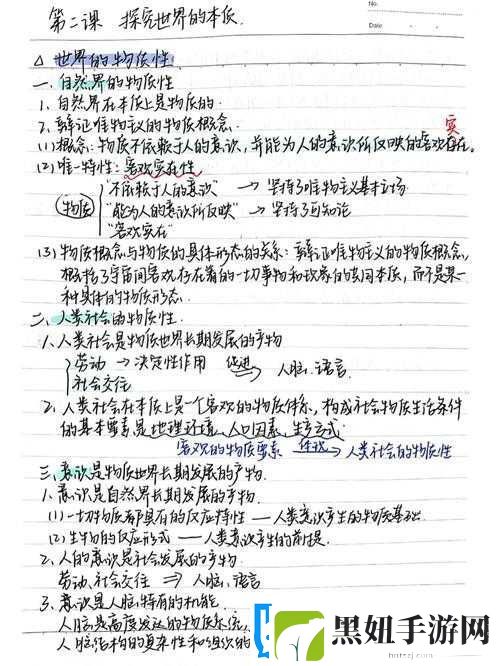 No.
Date
第二课 探究世界的本质.
△ 世界的物质性
一.自然界的物质性
1.自然界在本质上是物质的.
2.辩证唯物主义的物质概念.
实
(1)概念:物质不依赖于人的意识,并能为人的意识所反映的客观存在.
(2)唯一特性:客观实在性
"不依赖于人的意识" → 坚持了唯物主义基本立场.
物质 "能为人的意识所反映" → 坚持了可知论
"客观实在"
(3)物质概念与物质的具体形态的关系:辩证唯物主义的物质概念,
概括了宇宙间客观存在着的一切事物和现象的共同本质,而不是某一
种具体的物质形态.
二.人类社会的物质性.
1.人类社会是物质世界长期发展的产物
劳动 → 决定性作用 促进 人脑.语言.
社会交往
2.人类社会在本质上是一个客观的物质体系,构成社会物质生活条件
的基本要素是地理环境、人口因素、生产方式.
客观的物质要素 体现 → 人类社会的物质性
三.意识是物质世界长期发展的产物.
1.意识是自然界长期发展的产物.
(1)一切物质都具有的反应特性 — 人类意识产生的物质基础.
(2)生物的反应形式 — 人类意识产生的前提.
2.人的意识是社会发展的产物
劳动、社会交往 ⇒ 人脑、语言
3.意识是人脑特有的机能.
人脑是高度发达的物质系统,
人脑结构的复杂性和组织的
黑妞手游网